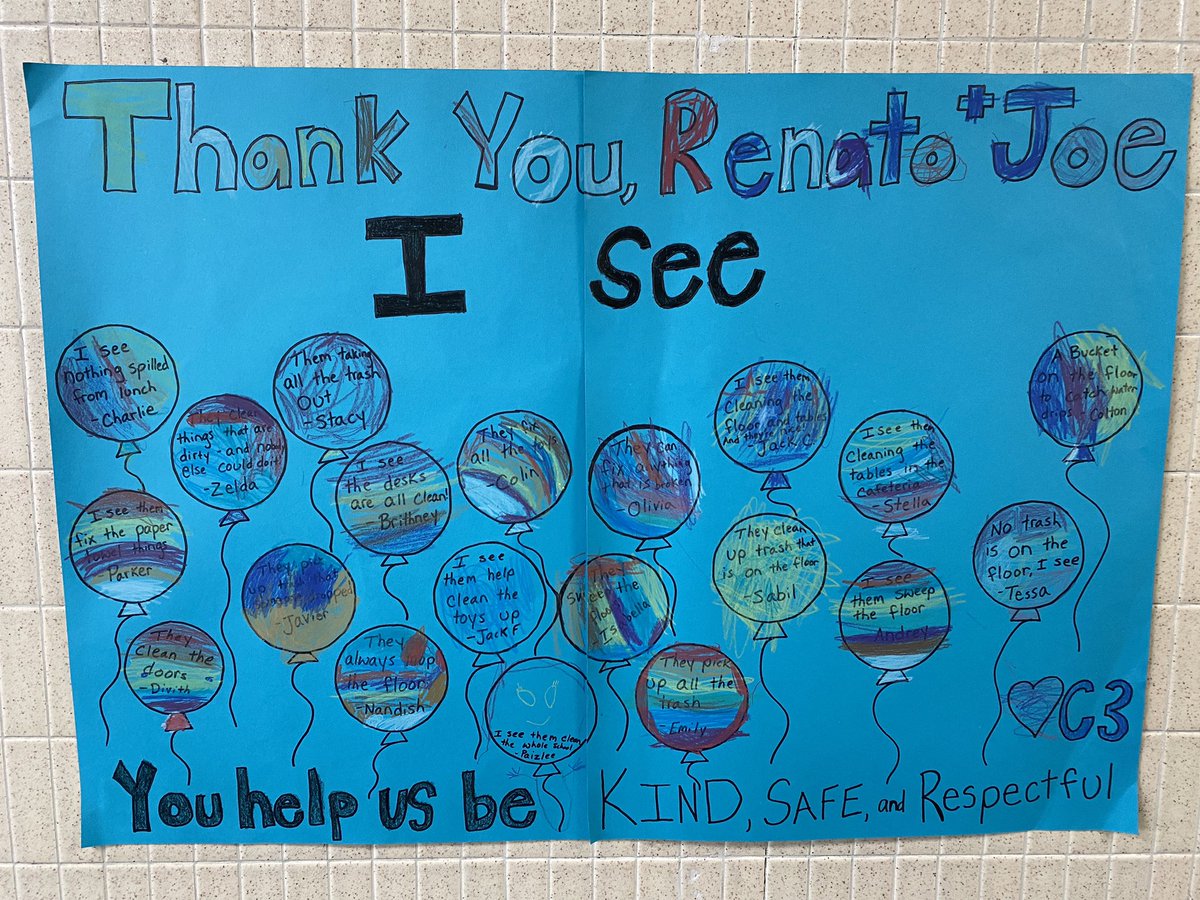 Thank You, Renato + Joe
I see
I see
nothing spilled
from lunch
-Charlie
Them taking
all the trash
Out
-Stacy
things that are
dirty and nobody
else could do it
-Zelda
I see
the desks
are all clean!
-Brithney
They fix
all the toys
-Colin
They can
fix anything
that is broken
-Olivia
I see them
Cleaning the
floor and tables
Jack C.
I see them
Cleaning the
tables in the
cafeteria
-Stella
A Bucket
on the floor
to catch water
drips Colton
I see them
fix the paper
towel things
-Parker
They pick
up
dropped
-Javier
I see
them help
clean the
toys up
-Jack F.
They
sweep the
floor
They clean
up trash that
is on the floor
-Sabil
I see
them sweep
the floor
Andrey
No trash
is on the
floor, I see
-Tessa
They
Clean the
doors
-Divith
They
always mop
the floor
-Nandish
I see them clean
the whole school
-Paizlee
They pick
up all the
trash
-Emily
C3
You help us be KIND, SAFE, and Respectful